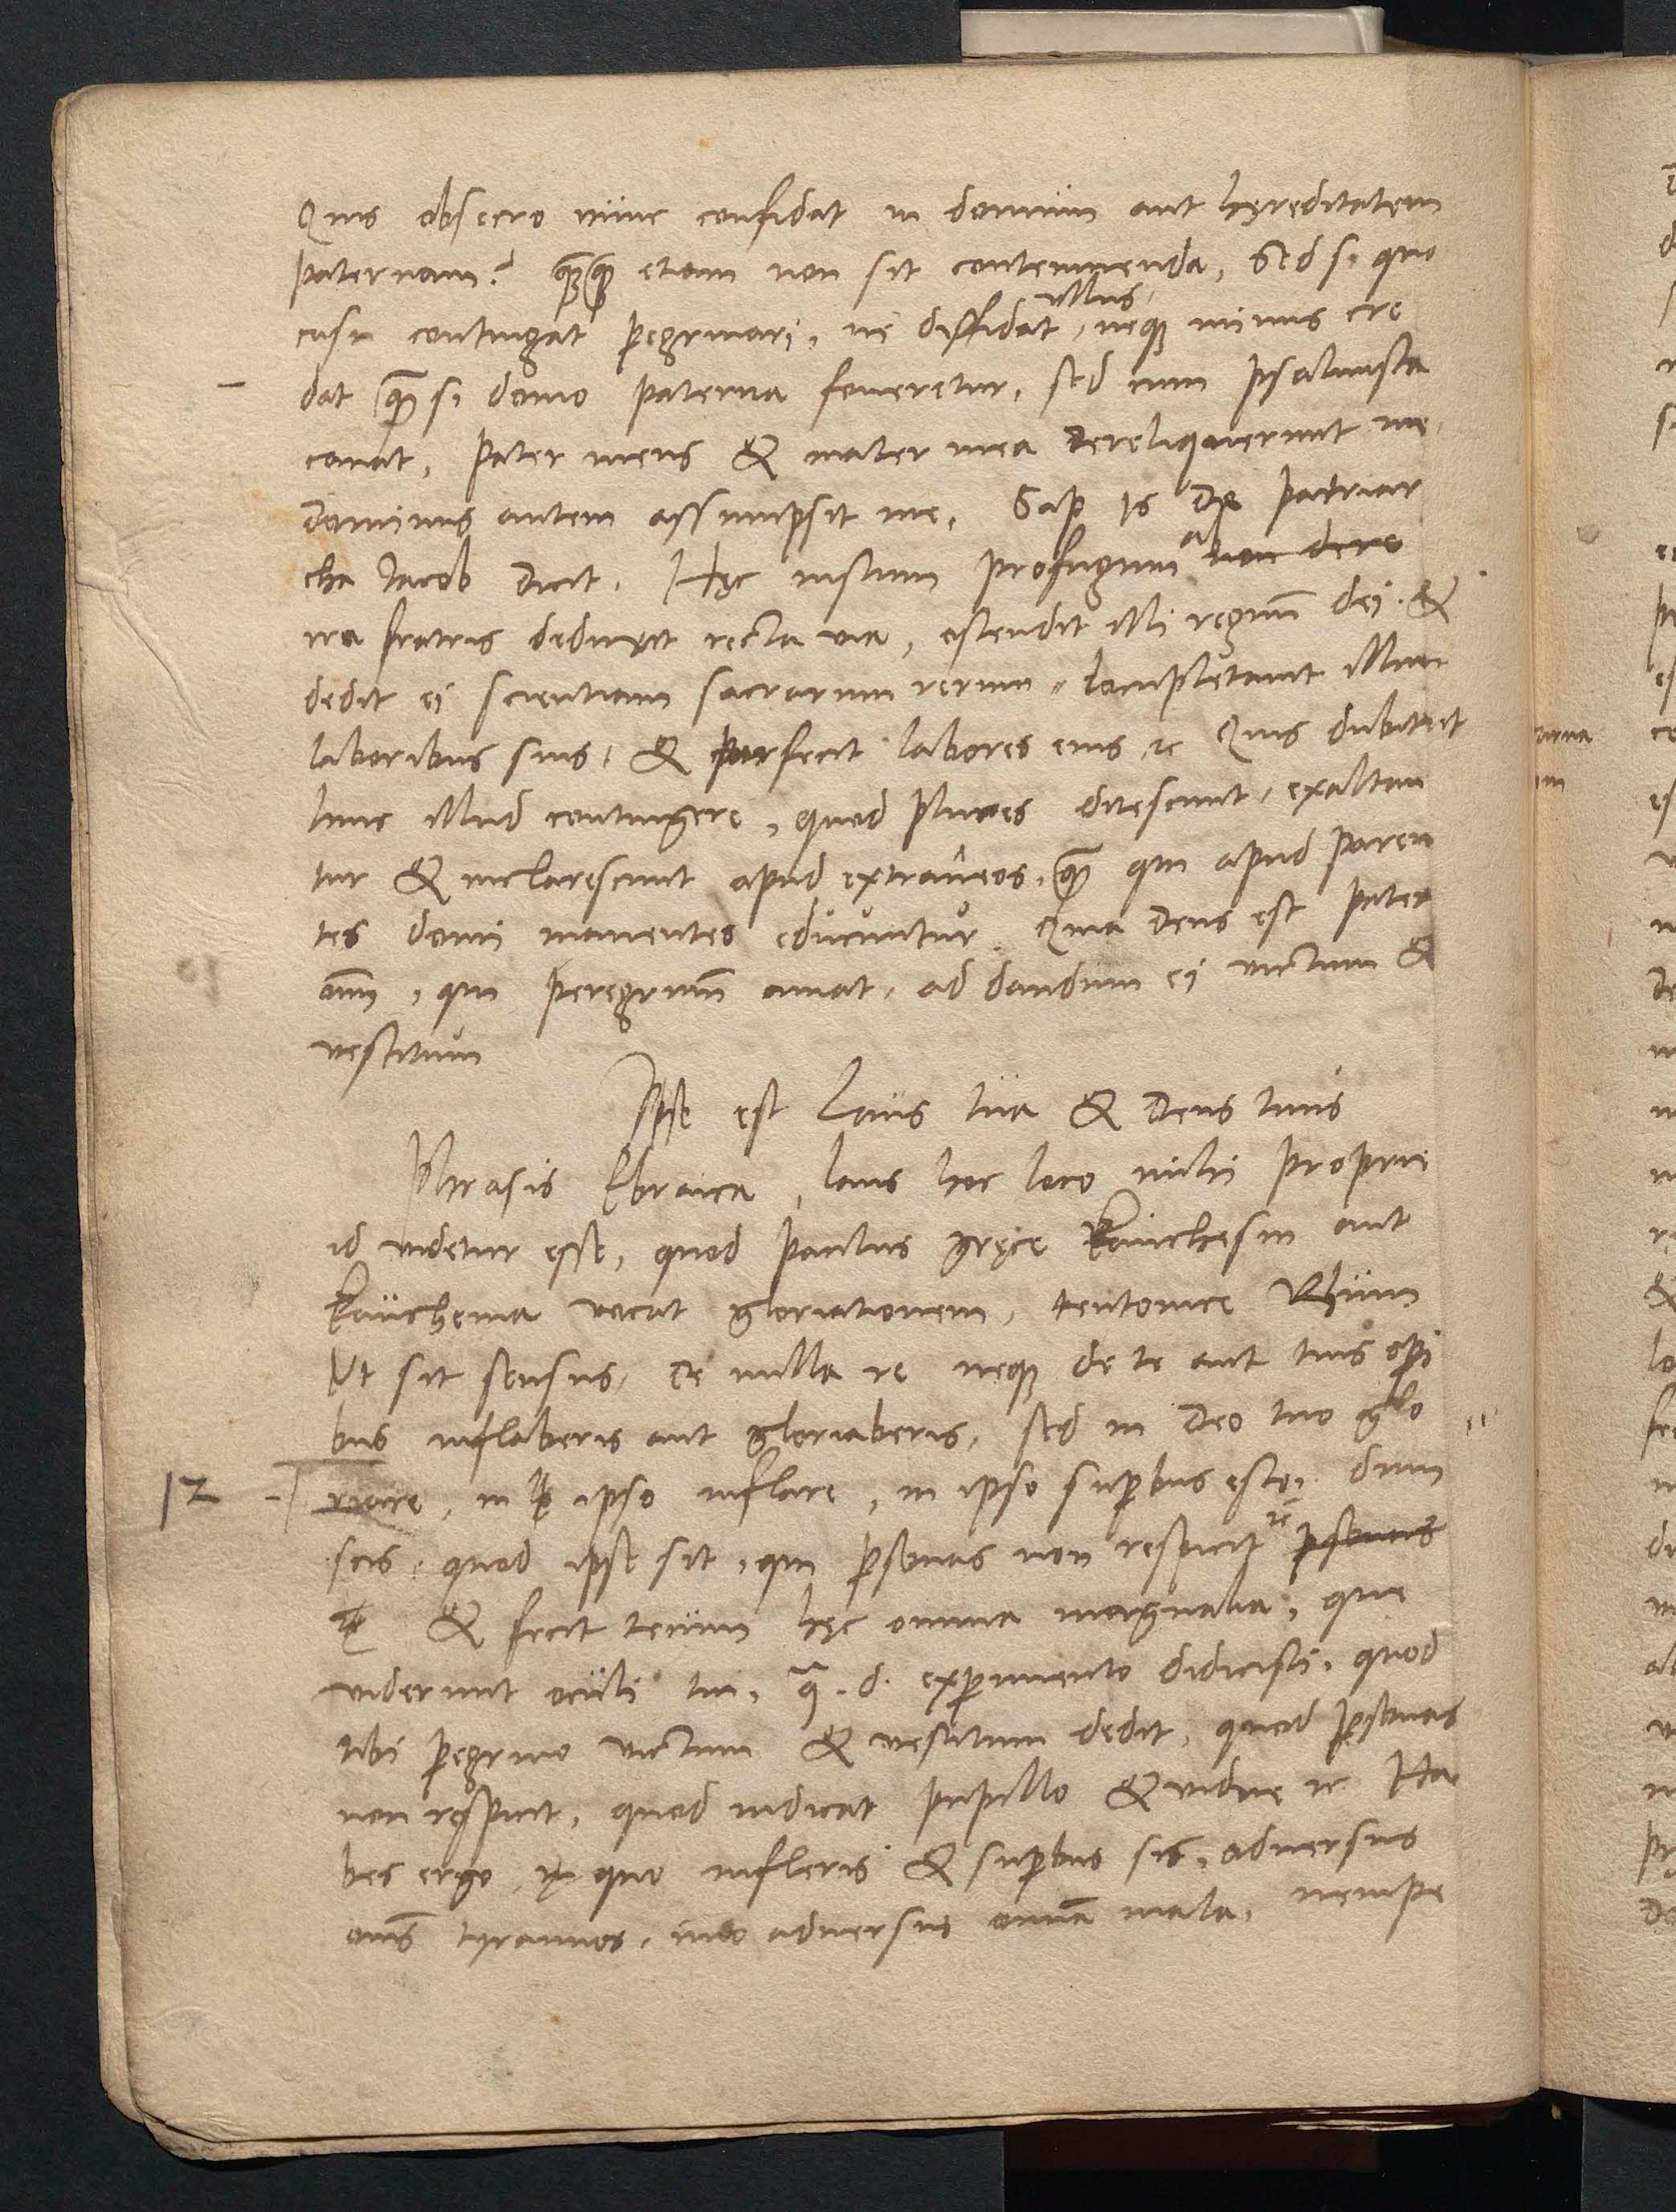 Quis obsecro nunc confidat in domum aut hęreditatem
paternam? quamquam etiam non sit contemnenda, Sed si quo
casu contingat peregrinari, ne diffidat ullus, neque minus cre
dat quam si domo paterna foueretur, sed cum psalmista
canat, Pater meus & mater mea dereliquerunt me
Dominus autem assumpsit me, Sap 10 De patriar
cha Iacob dicit. Hęc iustum profugum a non dere
ira fratris deduxit recta uia, ostendit illi regnum dei. &
dedit ei scientiam sacrorum rerum, locupletauit illum
laboribus suis, & perfecit labores eius, ꝛc Quis dubitat
hinc illud contingere, quod plures ditescunt, exaltan
tur & inclarescunt apud extraneos, quam qui apud paren
tes domi manentes educuntur. Quia Deus est pater
omnium, qui peregrinum amat, ad dandum ei uictum &
uestitum
Ipse est Laus tua & Deus tuus
Phrasis Ebraica, laus hoc loco mihi proprie
id uidetur esse, quod Paulus gręce Kauchesin aut
Kauchema uocat gloriationem, teutonice Rhum
Vt sit sensus, De nulla re neque de te aut tuis operi
bus inflaberis aut gloriaberis, sed in Deo tuo glo
12 riare, in ipso inflare, in ipso superbus esto, dum
scis, quod ipse sit, qui personas non respicit ꝛc personas
& fecit tecum hęc omnia magnalia, que
uiderunt oculi tui, q. d. experimento didicisti, quod
tibi peregrino uictum & uestitum dedit, quod personas
non respicit, quod iudicat pupillo & uidue ꝛc Ha
bes ergo, quo infleris & superbus sis, aduersus
omnes tyrannos, imo aduersus omnia mala, nempe